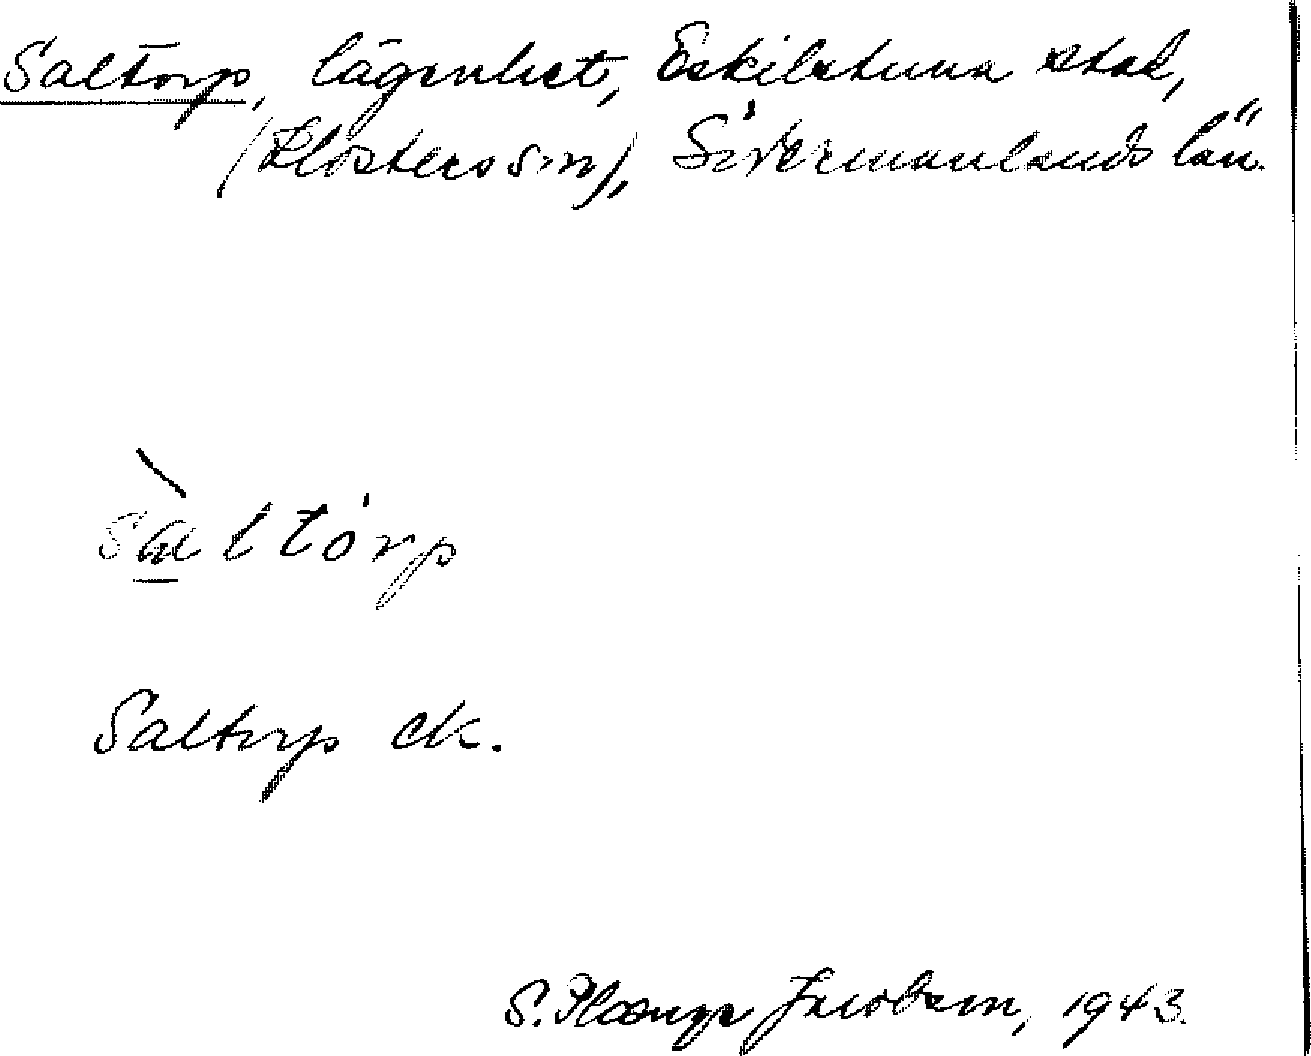 Saltorp, lägenhet, Eskilstuna stad,
(Klosters sn), Södermanlands län.
sàltórp
Saltorp ek.
S. Plænge Jacobson, 1943.